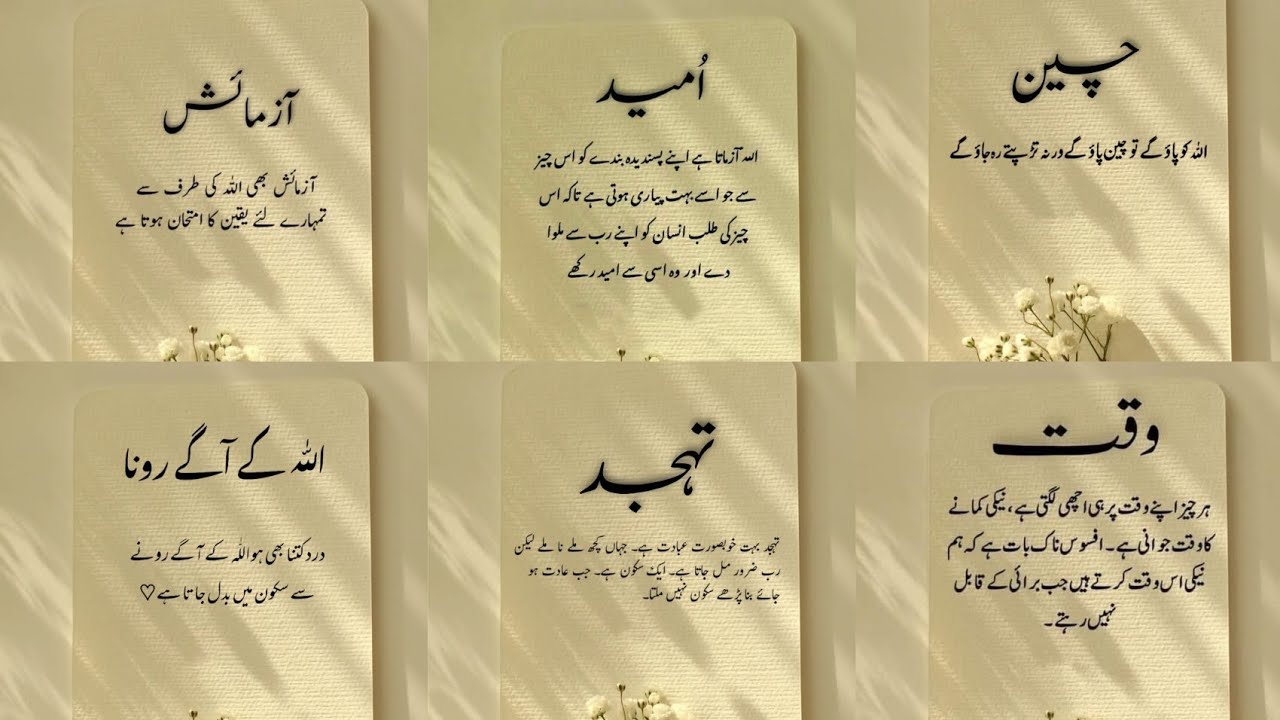 آزمائش
آزمائش بھی اللہ کی طرف سے
تمہارے لئے یقین کا امتحان ہوتا ہے
اُمید
اللہ آزماتا ہے اپنے پسندیدہ بندے کو اس چیز
سے جو اسے بہت پیاری ہوتی ہے تاکہ اس
چیز کی طلب انسان کو اپنے رب سے ملوا
دے اور وہ اسی سے امید رکھے
چین
اللہ کو پاؤ گے تو چین پاؤ گے ورنہ تڑپتے رہ جاؤ گے
اللہ کے آگے رونا
درد کتنا بھی ہو اللہ کے آگے رونے
سے سکون میں بدل جاتا ہے♡
تہجد
تہجد بہت خوبصورت عبادت ہے۔ جہاں کچھ ملے نا ملے لیکن
رب ضرور مل جاتا ہے۔ ایک سکون ہے۔ جب عادت ہو
جائے بنا پڑھے سکون نہیں ملتا۔
وقت
ہر چیز اپنے وقت پر ہی اچھی لگتی ہے، نیکی کمانے
کا وقت جوانی ہے۔ افسوس ناک بات ہے کہ ہم
نیکی اس وقت کرتے ہیں جب برائی کے قابل
نہیں رہتے۔